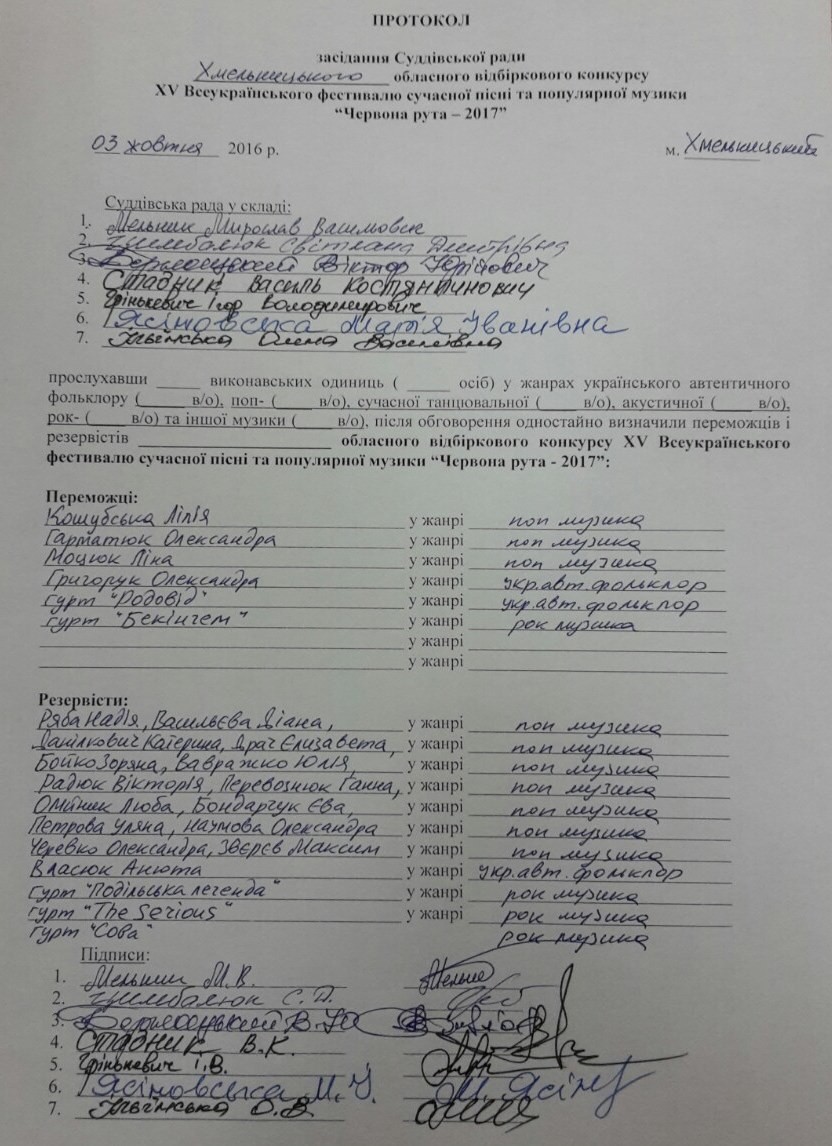 ПРОТОКОЛ
засідання Суддівської ради
Хмельницького обласного відбіркового конкурсу
XV Всеукраїнського фестивалю сучасної пісні та популярної музики
“Червона рута – 2017”
03 жовтня 2016 р. м. Хмельницький
Суддівська рада у складі:
1. Мельник Мирослав Васильович
2. Цимбалюк Світлана Дмитрівна
3. Віктор Юрійович
4. Стадник Василь Костянтинович
5. Грінькевич Ігор Володимирович
6. Ясіновська Марія Іванівна
7. Ільїнська Олена Василівна
прослухавши _____ виконавських одиниць ( _____ осіб) у жанрах українського автентичного
фольклору (_____ в/о), поп- (_____ в/о), сучасної танцювальної (_____ в/о), акустичної (_____ в/о),
рок- (_____ в/о) та іншої музики (_____ в/о), після обговорення одностайно визначили переможців і
резервістів _____ обласного відбіркового конкурсу XV Всеукраїнського
фестивалю сучасної пісні та популярної музики “Червона рута - 2017”:
Переможці:
Кошубська Лілія у жанрі поп музика
Гарматюк Олександра у жанрі поп музика
Моцюк Ліна у жанрі поп музика
Григорук Олександра у жанрі укр.авт.фольклор
гурт "Родовід" у жанрі укр.авт.фольклор
гурт "Бекінгем" у жанрі рок музика
у жанрі
у жанрі
Резервісти:
Ряба Надія, Васильєва Діана, у жанрі поп музика
Данілкович Катерина, Драч Єлизавета, у жанрі поп музика
Бойко Зоряна, Вавражко Юлія, у жанрі поп музика
Радюк Вікторія, Перевознюк Ганна, у жанрі поп музика
Олійник Люба, Бондарчук Єва, у жанрі поп музика
Петрова Уляна, Наумова Олександра у жанрі поп музика
Черевко Олександра, Звєрєв Максим у жанрі поп музика
Власюк Анюта у жанрі укр.авт.фольклор
гурт "Подільська легенда" у жанрі рок музика
гурт "The Serious" у жанрі рок музика
гурт "Сова" рок музика
Підписи:
1. Мельник М.В.
2. Цимбалюк С.Д.
3. В.Ю
4. Стадник В.К.
5. Грінькевич І.В.
6. Ясіновська М.І.
7. Ільїнська О.В